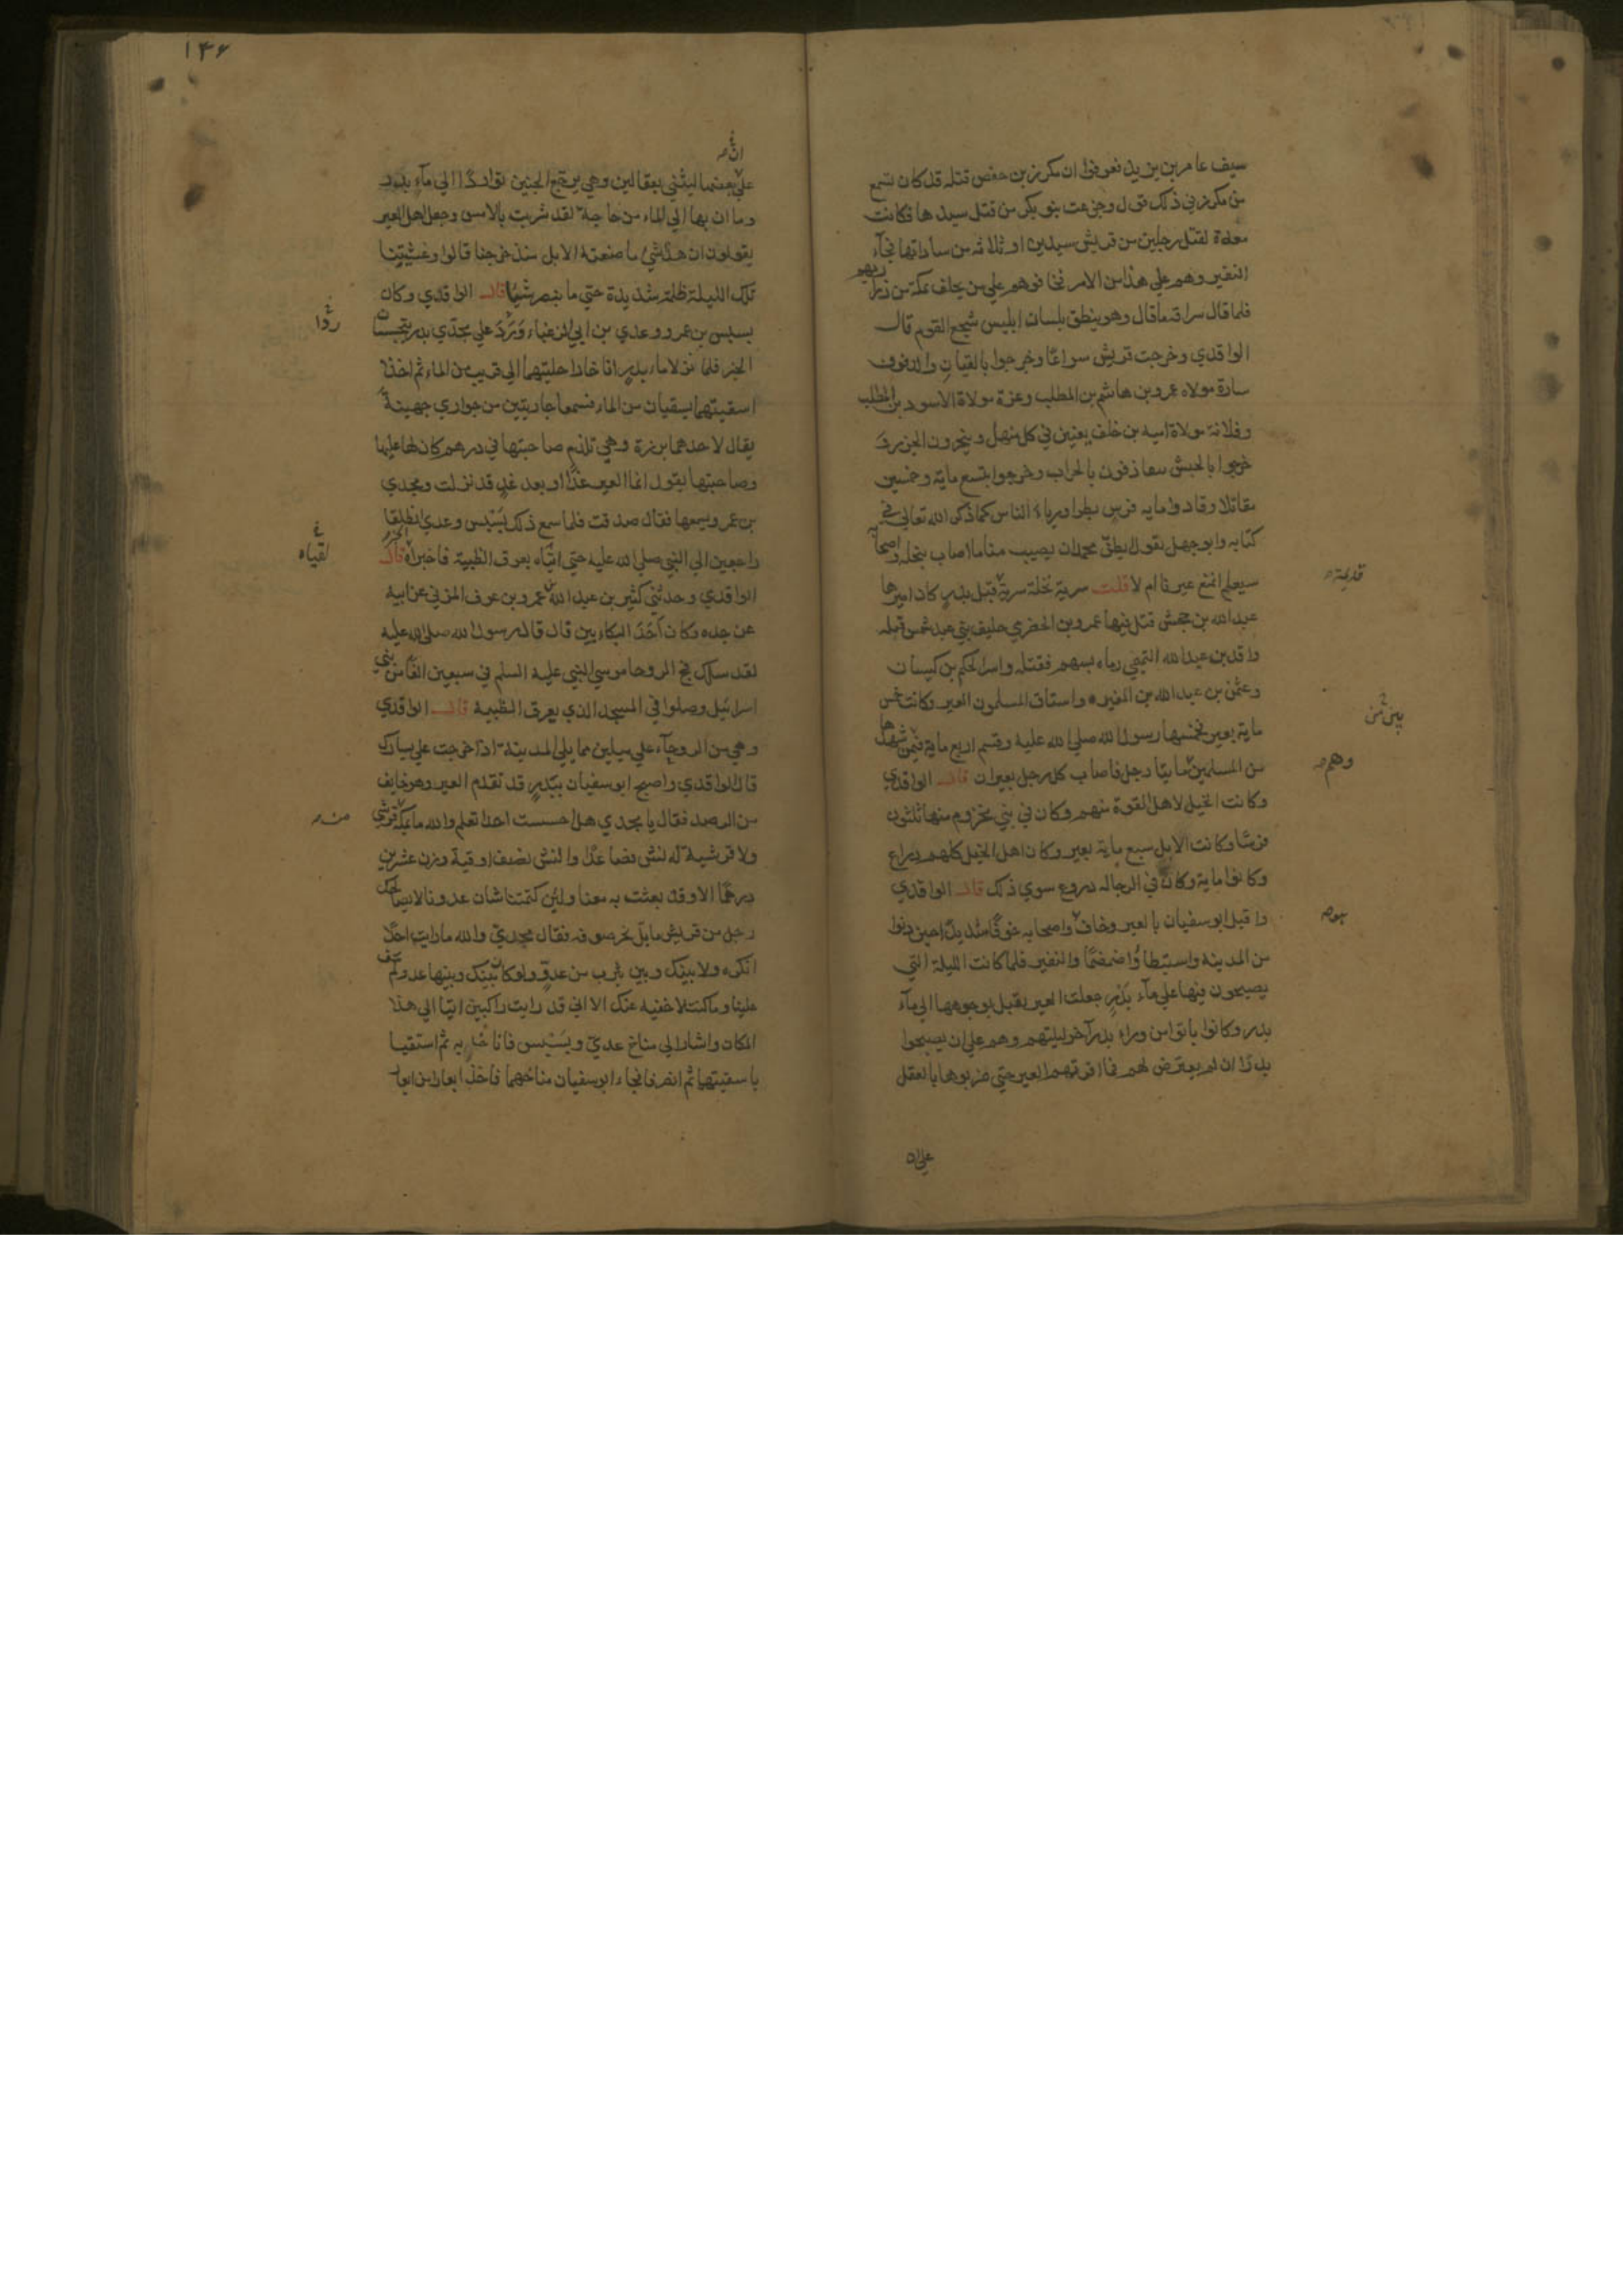 سيف عامر بن يزيد فعرفوا ان مكرز بن حفص قتله قد كان تسمع
من مكرز في ذلك قول وجزعت بنو بكر من قتل سيدها فكانت
معدة لقتل رجلين من قريش سيدين او ثلاثة من ساداتها فجآء
النفير وهم علي هذا من الامر فخافوهم علي من يخلف بمكة من ذراريهم
فلما قال سراقة ما قال وهو ينطق بلسان ابليس شجع القوم قال
الواقدي وخرجت قريش سراعا وخرجوا بالقيان والدفوف
سارة مولاه عمرو بن هاشم بن المطلب وعزة مولاة الاسود بن المطلب
وفلانة مولاة اميه بن خلف يغنين في كل منهل وينحرون الجزر و
خرجوا بالجيش يتقاذفون بالحراب وخرجوا بتسع ماية وخمسين
مقاتلا وقادوا مايه فرس بطرا ورياء الناس كما ذكر الله تعالي في
كتابه وابو جهل يقول ايظن محمد ان يصيب منا ما اصاب بنخله واصحابه
سيعلم انمنع عيرنا ام لا قلت سرية نخلة سرية قبل بدر كان اميرها
قديمة
عبد الله بن جحش قتل فيها عمرو بن الحضرمي حليف بني عبد شمس قتله
واقد بن عبد الله التميمي رماه بسهم فقتله واسر الحكم بن كيسان
وعثمن بن عبد الله بن المغيره واستاق المسلمون العير وكانت خمس
ماية بعير فخمسها رسول الله صلي الله عليه وقسم اربع ماية فيمن شهدها
من المسلمين مايتا رجل فاصاب كل رجل بعيران قال الواقدي
وهم
وكانت الخيل لاهل القوة منهم وكان في بني مخزوم منها ثلثون
فرسا وكانت الابل سبع ماية بعير وكان اهل الخيل كلهم دراع
وكانوا ماية وكان في الرجاله دروع سوي ذلك قال الواقدي
واقبل ابو سفيان بالعير وخاف واصحابه خوفا شديدا حين دنوا
من المدينه واستبطاوا ضمضما والنفير فلما كانت الليلة التي
يصبحون فيها علي مآء بدر جعلت العير يقبل بوجوهها الي مآء
بدر وكانوا باتوا من ورآء بدر آخر ليلتهم وهم علي ان يصبحوا
بدرا ان لم يعترض لهم فما اقرتهم العير حتي ضربوها بالعقل
علي ان
١٤٦
علي بعضها ليثني بعقالين وهي يرجع الحنين تواردا الي مآء بدر
وما ان بها الي الماء من حاجة لقد شربت بالامس وجعل اهل العير
يقولون ان هذا شي ما صنعته الابل منذ خرجنا قالوا وغشيتنا
تلك الليلة ظلمة شديدة حتي ما نبصر شيئا قال الواقدي وكان
بسبس بن عمرو وعدي بن ابي الزغباء وردا علي مجدي بدر يتجسسان
الخبر فلما نزلا ماء بدر اناخا راحلتيهما الي قريب من الماء ثم اخذا
اسقيتهما يسقيان من الماء فسمعا جاريتين من جواري جهينة
يقال لاحدهما برزة وهي تلزم صاحبتها في درهم كان لها عليها
وصاحبتها يقول انما العير غدا او بعد غد قد نزلت ومجدي
بن عمرو يسمعها فقال صدقت فلما سمع ذلك بسبس وعدي انطلقا
راجعين الي النبي صلي الله عليه حتي اتياه بعرق الظبية فاخبراه الخبر قال
لقياه
الواقدي وحدثني كثير بن عبد الله عمرو بن عوف المزني عن ابيه
عن جده وكان احد البكايين قال قال رسول الله صلي الله عليه
لقد سلك فج الروحا موسي النبي عليه السلم في سبعين الفا من بني
اسرائيل وصلوا في المسجد الذي بعرق الظبية قال الواقدي
وهي من الروحآء علي ميلين مما يلي المدينة اذا خرجت علي يسارك
قال الواقدي واصبح ابو سفيان ببدر قد تقدم العير وهو خايف
من الرصد فقال يا مجدي هل احسست احدا تعلم والله ما بمكة قرشي
من
ولا قرشية له نش فصاعدا والنش نصف اوقية وزن عشرين
درهما الا وقد بعثت به معنا ولين كتمتنا شان عدونا لا يصالحك
رجل من قريش ما بل بحر صوفه فقال مجدي والله ما رايت احدا
انكره ولا بينك وبين يثرب من عدو ولو كان بينك وبينها عدو لم يخف
علينا وما كنت لاخفيه عنك الا اني قد رايت راكبين اتيا الي هذا
المكان واشار الي مناخ عدي وبسبس فاناخا به ثم استقيا
باسقيتهما ثم انصرفا فجاء ابو سفيان مناخهما فاخذ ابعارا من ابعار